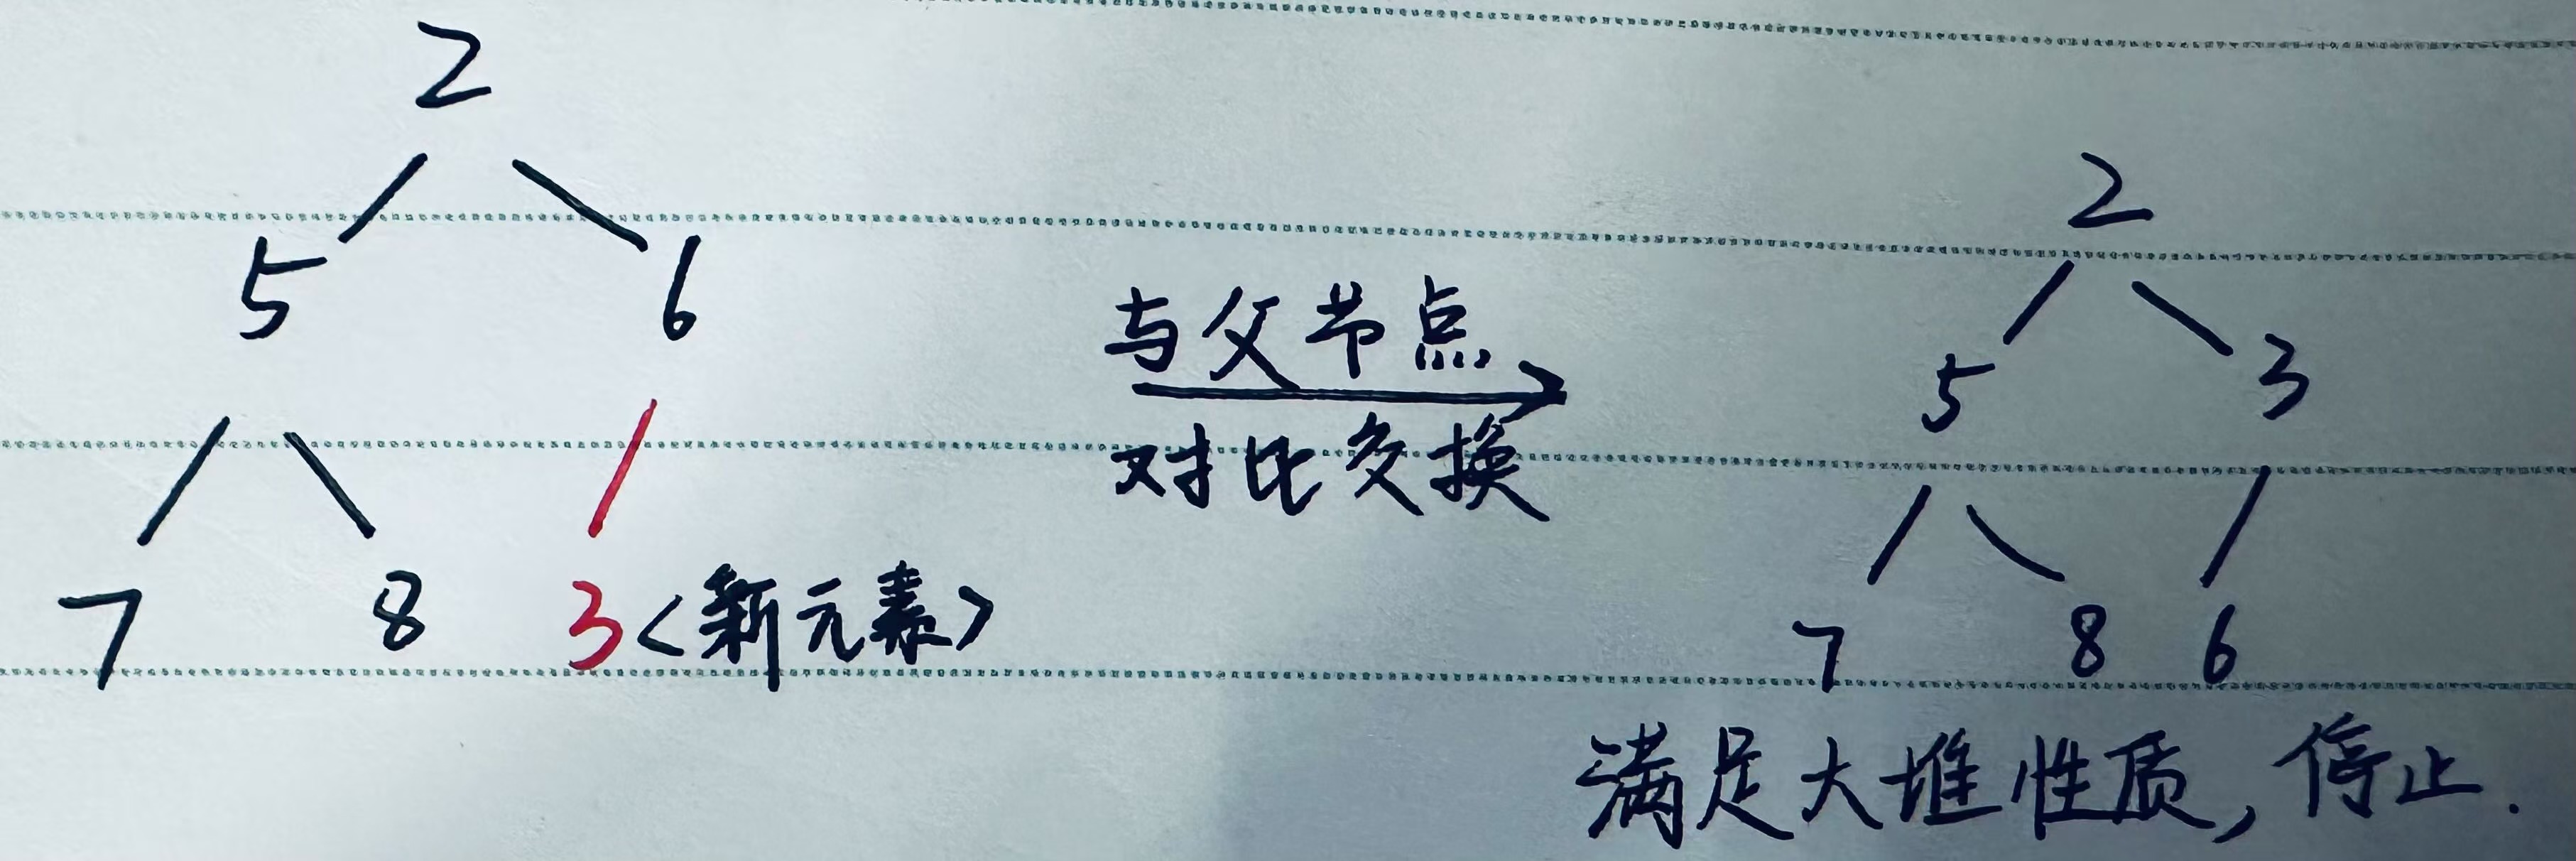 2
5 6
7 8 3<新元素>
与父节点
对比交换
2
5 3
7 8 6
满足大堆性质,停止.